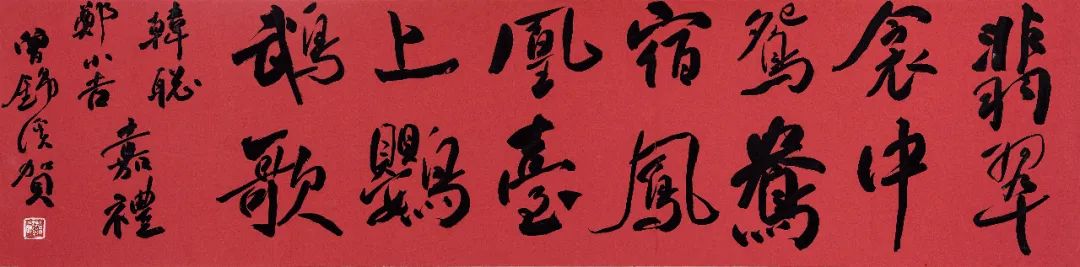 翡翠
衾中
鴛鴦
宿鳳
凰臺
上鸚
鵡歌
韓聡
鄭小杏
嘉禮
曾錦溪賀